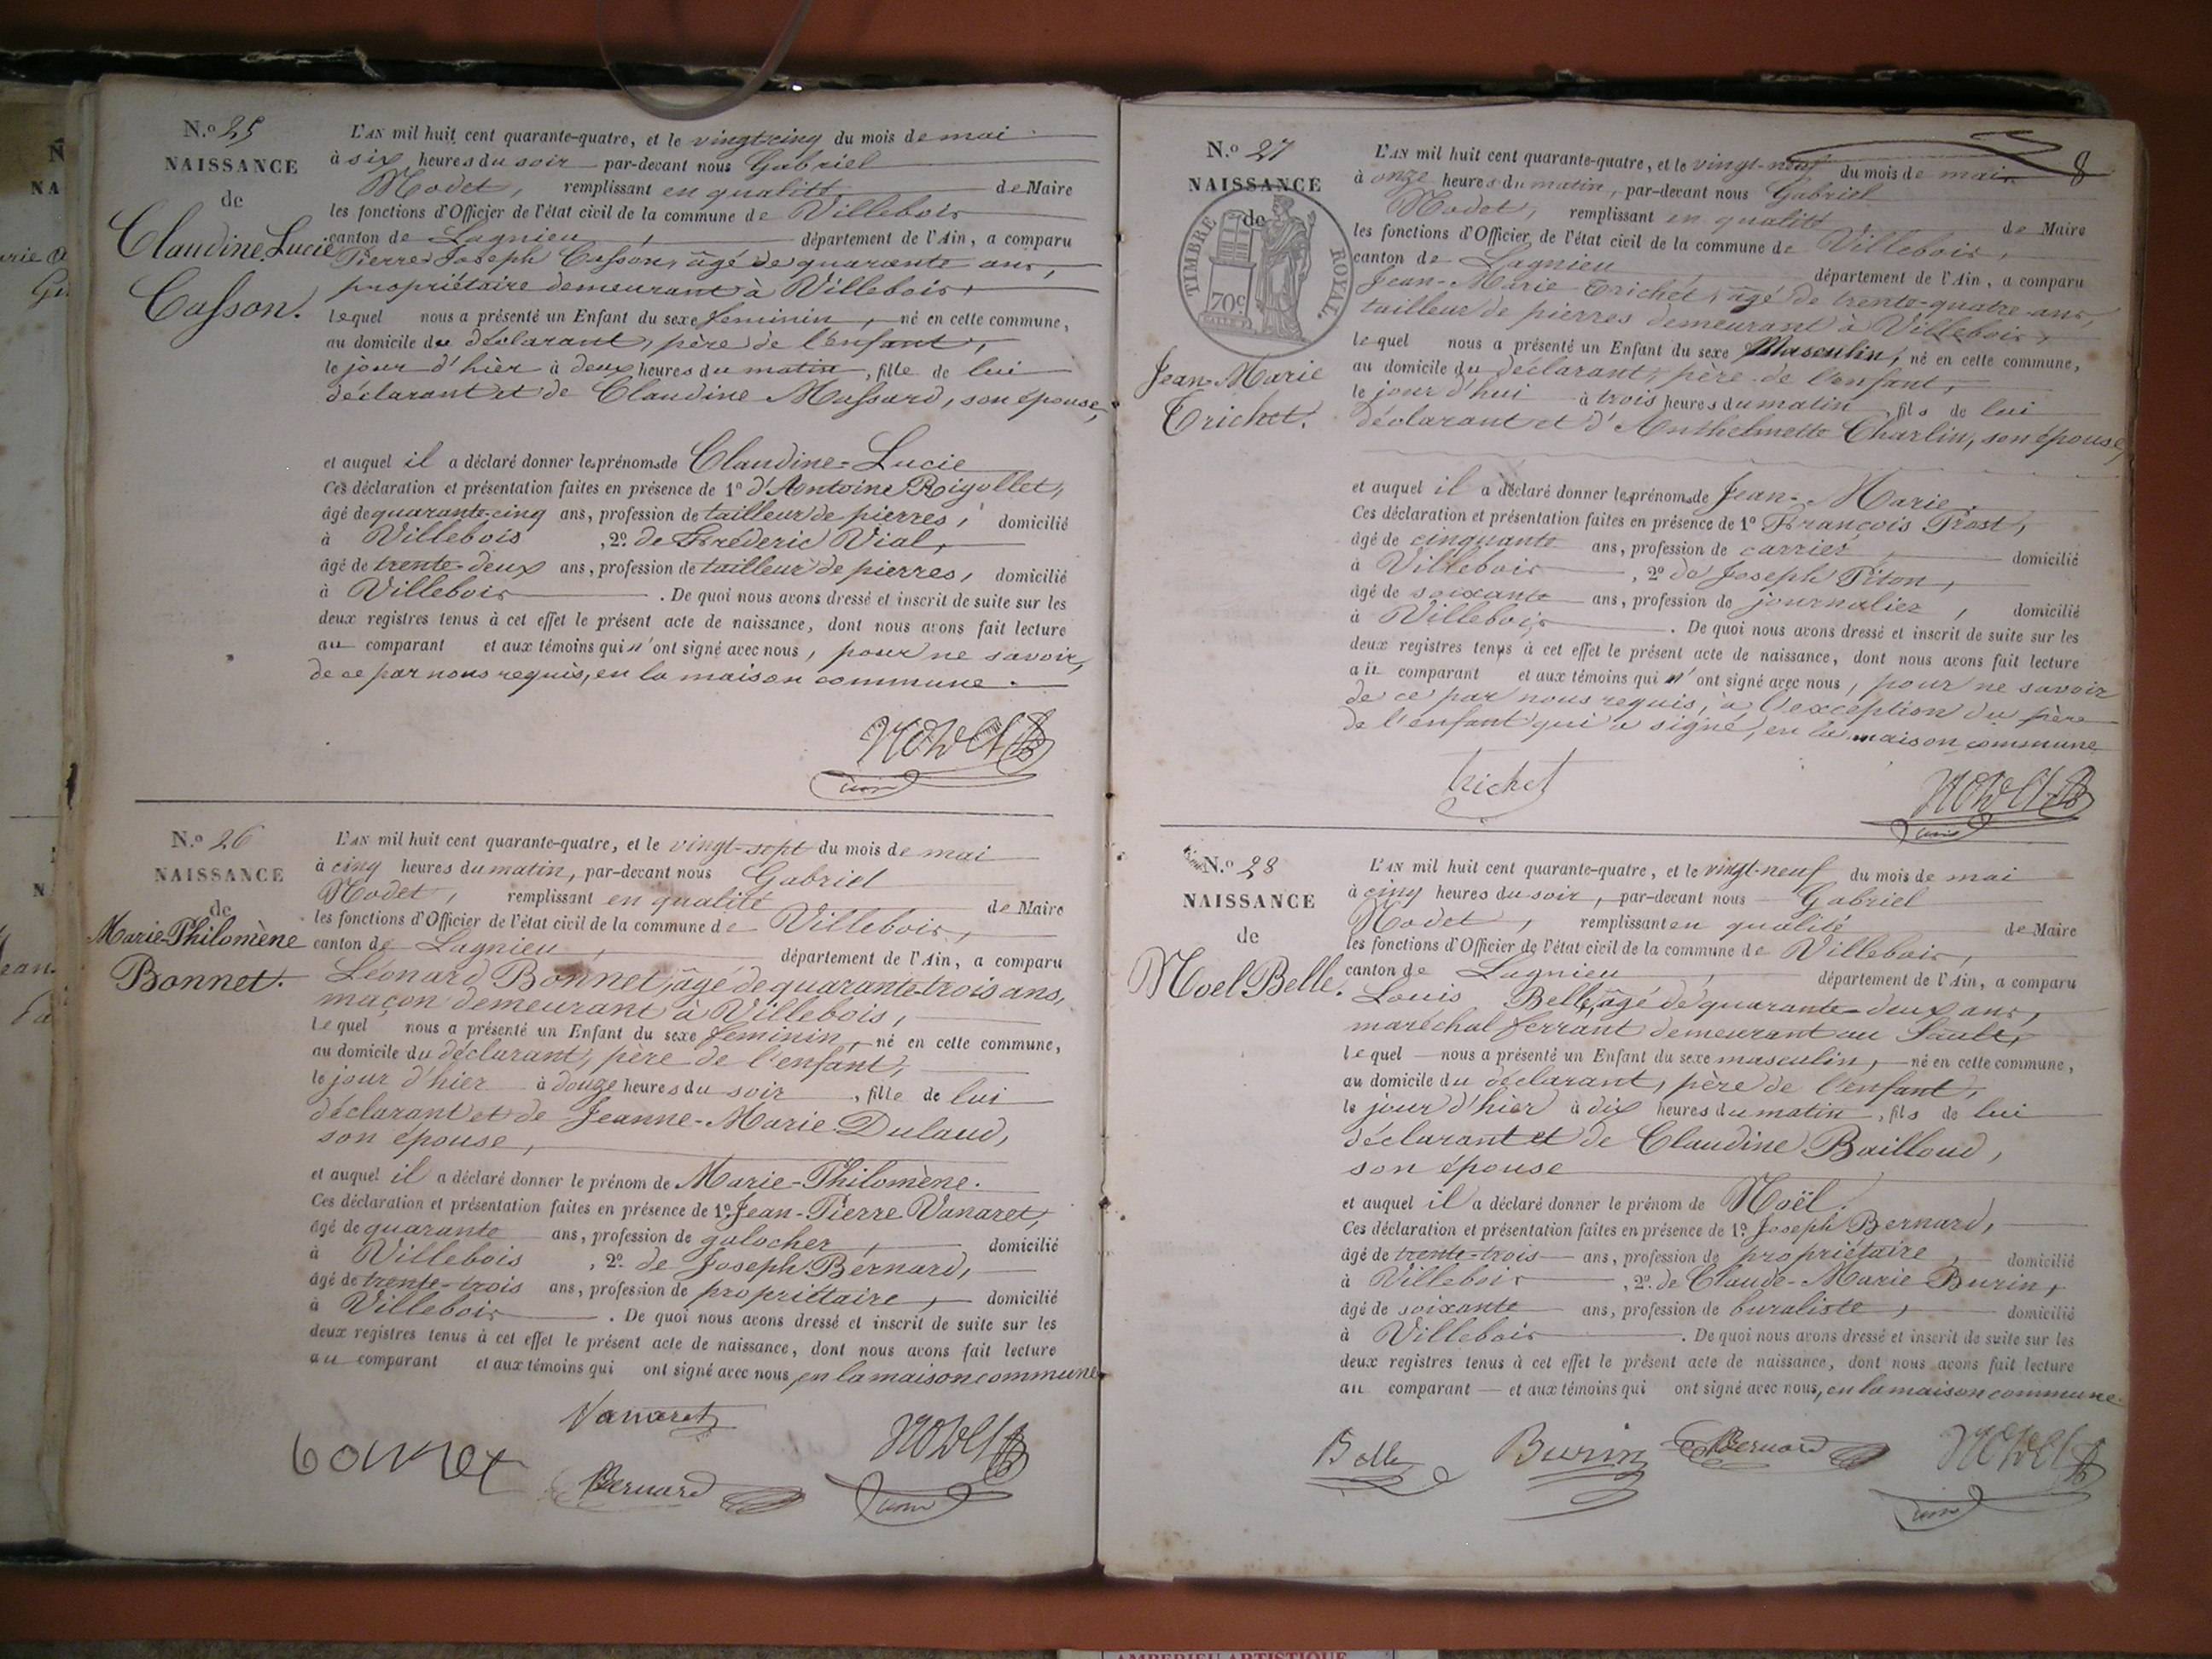 N.º 25
NAISSANCE
de
Claudine-Lucie
Casson.
L'AN mil huit cent quarante-quatre, et le vingt-cinq du mois de mai
à six heures du soir par-devant nous Gabriel
Nodet, remplissant en qualité de Maire
les fonctions d'Officier de l'état civil de la commune de Villebois
canton de Lagnieu, département de l'Ain, a comparu
Pierre-Joseph Casson, âgé de quarante ans,
propriétaire demeurant à Villebois,
lequel nous a présenté un Enfant du sexe féminin, né en cette commune,
au domicile du déclarant, père de l'enfant,
le jour d'hier à deux heures du matin, fille de lui
déclarant et de Claudine Massard, son épouse,
et auquel il a déclaré donner les prénoms de Claudine-Lucie
Ces déclaration et présentation faites en présence de 1º d'Antoine Rigollet,
âgé de quarante-cinq ans, profession de tailleur de pierres, domicilié
à Villebois, 2º de Frédéric Vial,
âgé de trente-deux ans, profession de tailleur de pierres, domicilié
à Villebois. De quoi nous avons dressé et inscrit de suite sur les
deux registres tenus à cet effet le présent acte de naissance, dont nous avons fait lecture
au comparant et aux témoins qui n'ont signé avec nous, pour ne savoir,
de ce par nous requis, en la maison commune.
Nodet
N.º 26
NAISSANCE
de
Marie-Philomène
Bonnet.
L'AN mil huit cent quarante-quatre, et le vingt-sept du mois de mai
à cinq heures du matin, par-devant nous Gabriel
Nodet, remplissant en qualité de Maire
les fonctions d'Officier de l'état civil de la commune de Villebois,
canton de Lagnieu, département de l'Ain, a comparu
Léonard Bonnet, âgé de quarante-trois ans,
maçon demeurant à Villebois,
lequel nous a présenté un Enfant du sexe féminin, né en cette commune,
au domicile du déclarant, père de l'enfant,
le jour d'hier à douze heures du soir, fille de lui
déclarant et de Jeanne-Marie Dulaud,
son épouse,
et auquel il a déclaré donner le prénom de Marie-Philomène.
Ces déclaration et présentation faites en présence de 1º Jean-Pierre Vanaret,
âgé de quarante ans, profession de galocher, domicilié
à Villebois, 2º de Joseph Bernard,
âgé de trente-trois ans, profession de propriétaire, domicilié
à Villebois. De quoi nous avons dressé et inscrit de suite sur les
deux registres tenus à cet effet le présent acte de naissance, dont nous avons fait lecture
au comparant et aux témoins qui ont signé avec nous, en la maison commune
Vanaret
bonnet
Bernard
Nodet
8
N.º 27
NAISSANCE
de
TIMBRE ROYAL
70c
Jean-Marie
Trichet.
L'AN mil huit cent quarante-quatre, et le vingt-neuf du mois de mai
à onze heures du matin, par-devant nous Gabriel
Nodet, remplissant en qualité de Maire
les fonctions d'Officier de l'état civil de la commune de Villebois,
canton de Lagnieu, département de l'Ain, a comparu
Jean-Marie Trichet, âgé de trente-quatre ans,
tailleur de pierres demeurant à Villebois,
lequel nous a présenté un Enfant du sexe Masculin, né en cette commune,
au domicile du déclarant, père de l'enfant,
le jour d'hui à trois heures du matin, fils de lui
déclarant et d'Anthelmette Charlin, son épouse,
et auquel il a déclaré donner les prénoms de Jean-Marie.
Ces déclaration et présentation faites en présence de 1º François Prost,
âgé de cinquante ans, profession de carrier, domicilié
à Villebois, 2º de Joseph Piton,
âgé de soixante ans, profession de journalier, domicilié
à Villebois. De quoi nous avons dressé et inscrit de suite sur les
deux registres tenus à cet effet le présent acte de naissance, dont nous avons fait lecture
au comparant et aux témoins qui n'ont signé avec nous, pour ne savoir
de ce par nous requis, à l'exception du père
de l'enfant qui a signé, en la maison commune
trichet
Nodet
N.º 28
NAISSANCE
de
Noel Belle.
L'AN mil huit cent quarante-quatre, et le vingt-neuf du mois de mai
à cinq heures du soir, par-devant nous Gabriel
Nodet, remplissant en qualité de Maire
les fonctions d'Officier de l'état civil de la commune de Villebois,
canton de Lagnieu, département de l'Ain, a comparu
Louis Belle, âgé de quarante-deux ans,
maréchal ferrant demeurant au Sault,
lequel nous a présenté un Enfant du sexe masculin, né en cette commune,
au domicile du déclarant, père de l'enfant,
le jour d'hier à dix heures du matin, fils de lui
déclarant et de Claudine Bailloud,
son épouse
et auquel il a déclaré donner le prénom de Noël.
Ces déclaration et présentation faites en présence de 1º Joseph Bernard,
âgé de trente-trois ans, profession de propriétaire, domicilié
à Villebois, 2º de Claude-Marie Burin,
âgé de soixante ans, profession de buraliste, domicilié
à Villebois. De quoi nous avons dressé et inscrit de suite sur les
deux registres tenus à cet effet le présent acte de naissance, dont nous avons fait lecture
au comparant et aux témoins qui ont signé avec nous, en la maison commune
Belle
Burin
Bernard
Nodet
AMBERIEU ARTISTIQUE